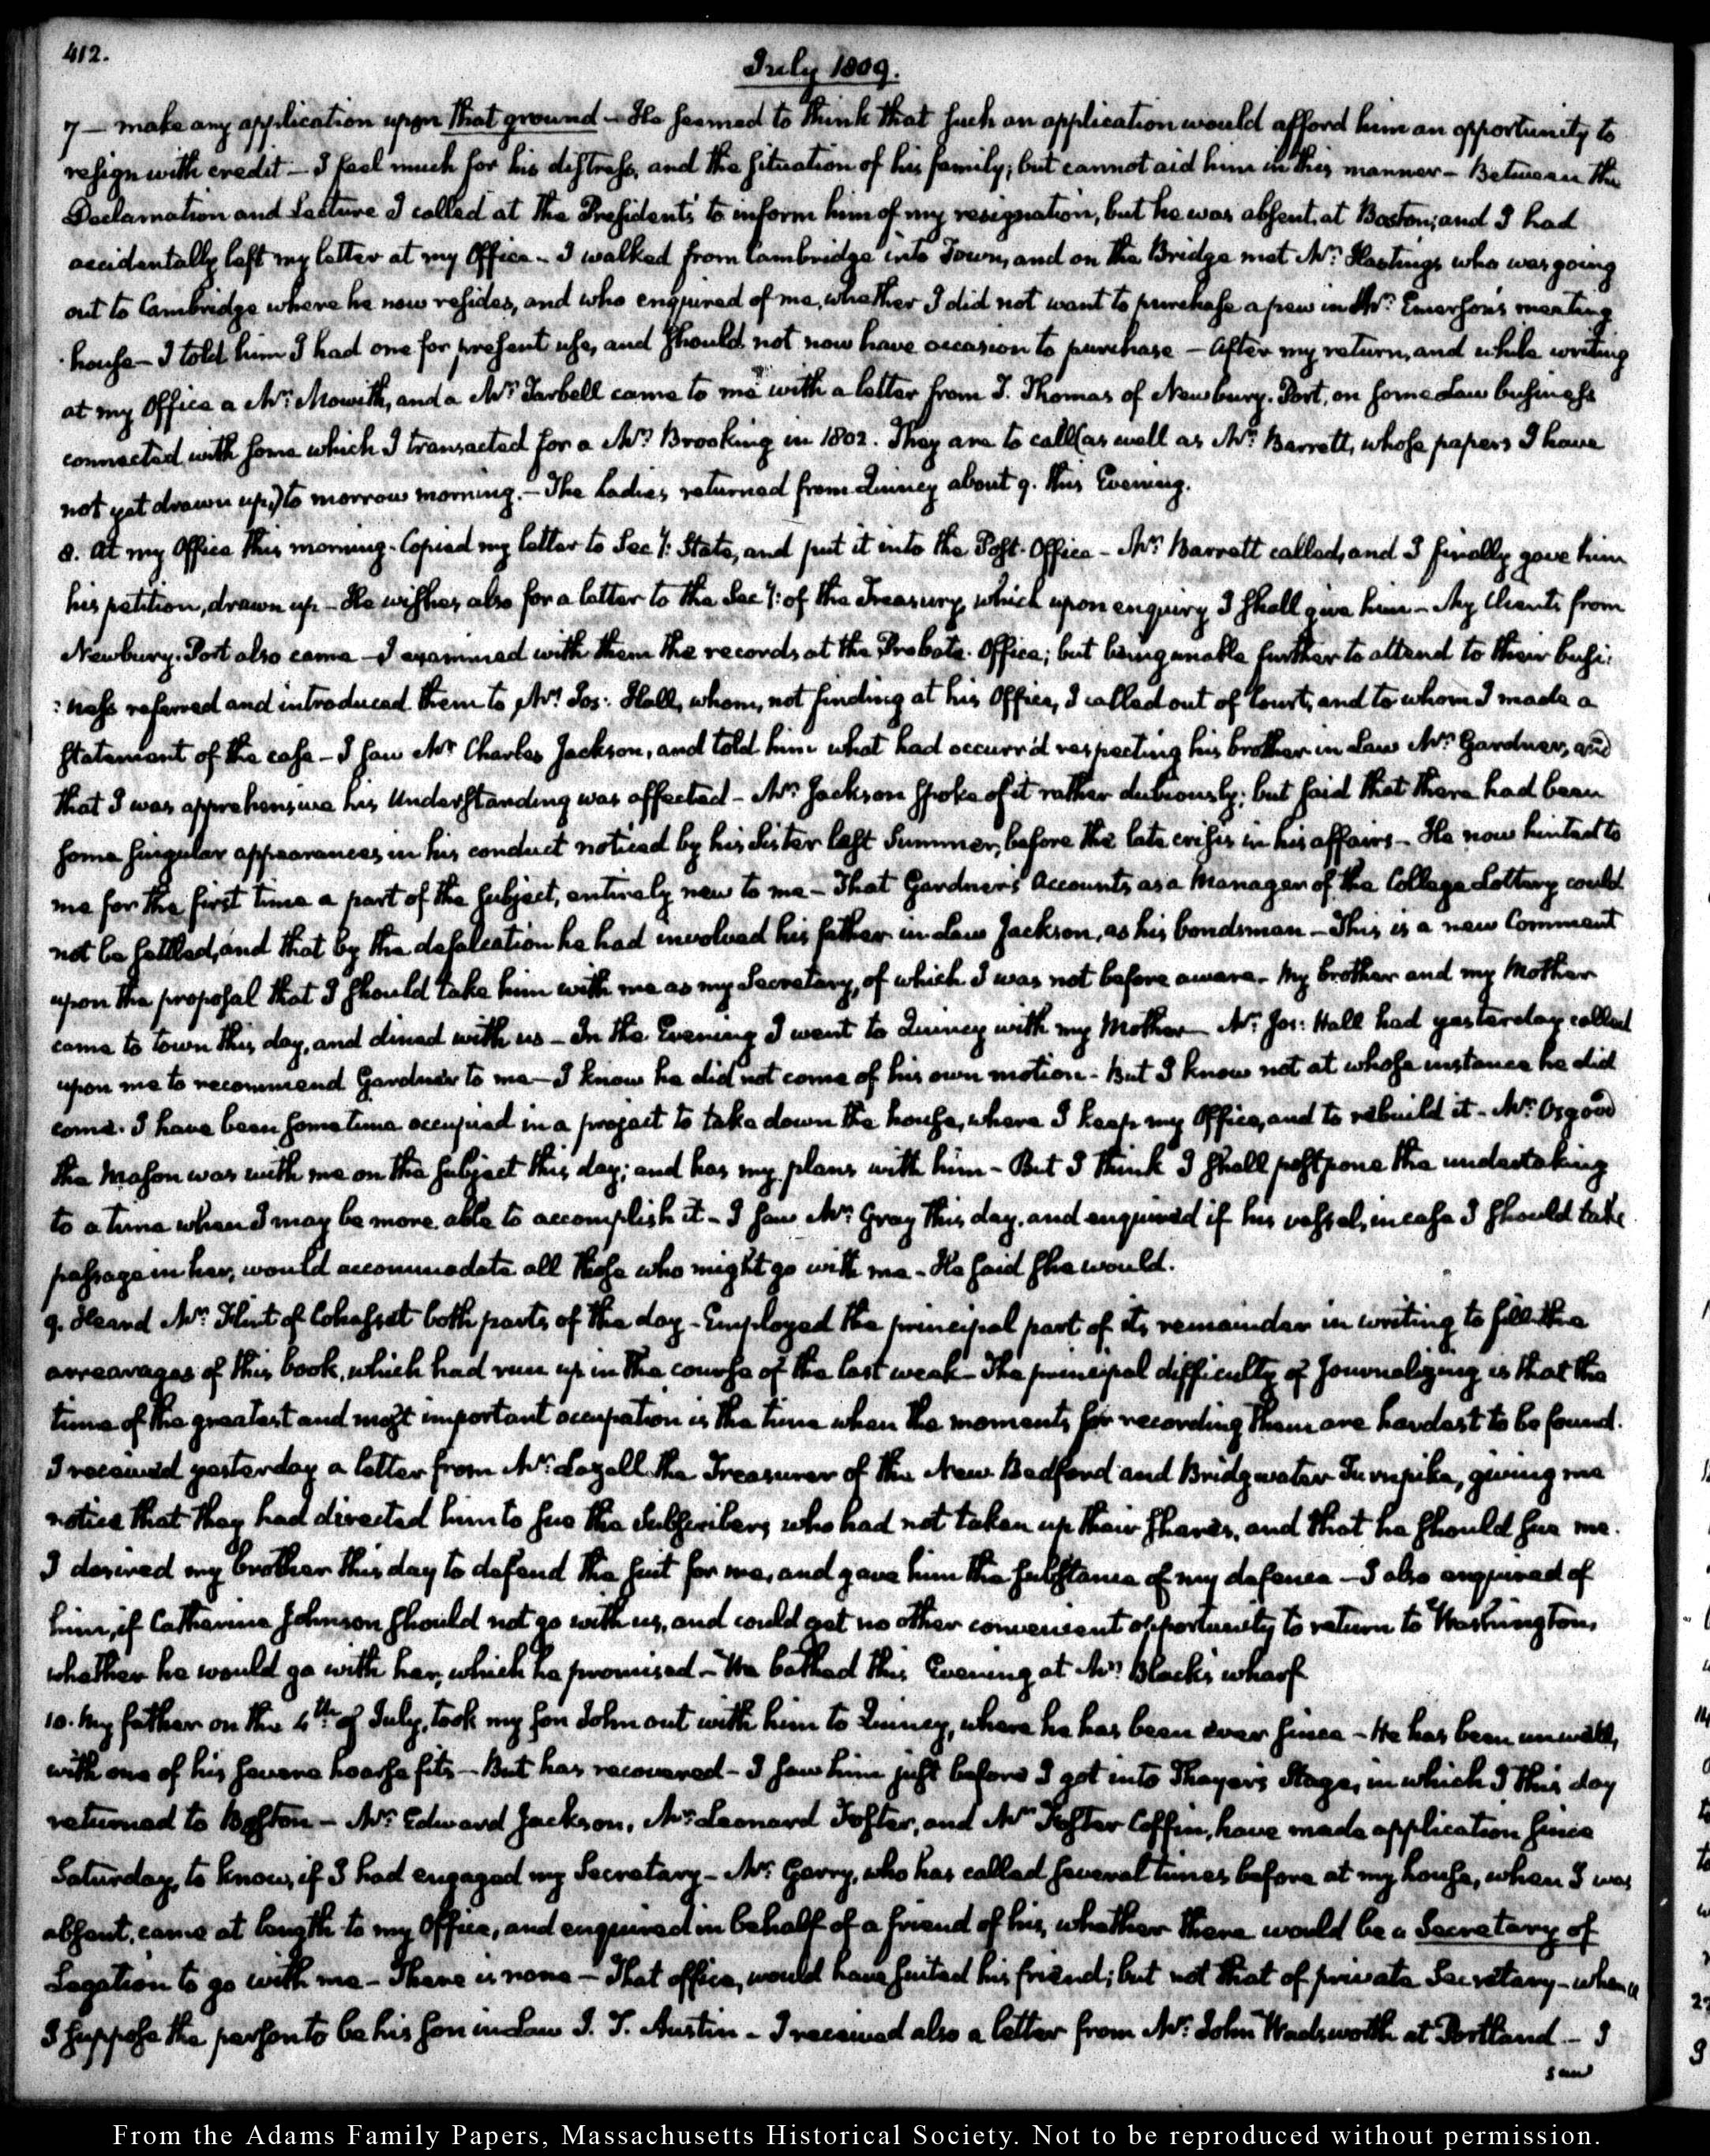 412.
July 1809.
7 — make any application upon that ground — He seemed to think that such an application would afford him an opportunity to
resign with credit — I feel much for his distress, and the situation of his family; but cannot aid him in this manner — Between the
Declamation and Lecture I called at the President's to inform him of my resignation, but he was absent, at Boston; and I had
accidentally left my letter at my Office — I walked from Cambridge into Town, and on the Bridge met Mr. Hastings who was going
out to Cambridge where he now resides, and who enquired of me, whether I did not want to purchase a pew in Mr. Emerson's meeting
house — I told him I had one for present use, and should not now have occasion to purchase — After my return, and while writing
at my Office a Mr. Mowith, and a Mr. Tarbell came to me with a letter from J. Thomas of Newbury-Port, on some Law business
connected with some which I transacted for a Mr. Brooking in 1802. They are to call (as well as Mr. Barrett, whose papers I have
not yet drawn up,) to morrow morning. — The Ladies returned from Quincy about 9. this Evening.
8. At my Office this morning. Copied my letter to Secy. State, and put it into the Post-Office — Mr. Barrett called, and I finally gave him
his petition, drawn up — He wishes also for a letter to the Secy. of the Treasury, which upon enquiry I shall give him — My Clients from
Newbury-Port also came — I examined with them the records at the Probate-Office; but being unable further to attend to their busi:
:ness referred and introduced them to Mr. Jos: Hall, whom, not finding at his Office, I called out of Court, and to whom I made a
statement of the case — I saw Mr. Charles Jackson, and told him what had occurr'd respecting his brother in Law Mr. Gardner, and
that I was apprehensive his Understanding was affected — Mr. Jackson spoke of it rather dubiously; but said that there had been
some singular appearances in his conduct noticed by his Sister last Summer, before the late crisis in his affairs — He now hinted to
me for the first time a part of the subject, entirely new to me — That Gardner's Accounts, as a Manager of the College Lottery could
not be settled, and that by the defalcation he had involved his father in Law Jackson, as his bondsman — This is a new Comment
upon the proposal that I should take him with me as my Secretary, of which I was not before aware — My brother and my Mother
came to town this day, and dined with us — In the Evening I went to Quincy with my Mother — Mr. Jos: Hall had yesterday called
upon me to recommend Gardner to me — I know he did not come of his own motion — But I know not at whose instance he did
come. I have been sometime occupied in a project to take down the house, where I keep my Office, and to rebuild it — Mr. Osgood
the Mason was with me on the subject this day; and has my plans with him — But I think I shall postpone the undertaking
to a time when I may be more able to accomplish it — I saw Mr. Gray this day, and enquired if his vessel, in case I should take
passage in her, would accommodate all those who might go with me — He said she would.
9. Heard Mr. Flint of Cohasset both parts of the day — Employed the principal part of its remainder in writing to fill the
arrearages of this book, which had run up in the course of the last week — The principal difficulty of Journalizing is that the
time of the greatest and most important occupation is the time when the moments for recording them are hardest to be found.
I received yesterday a letter from Mr. Lazell the Treasurer of the New-Bedford and Bridgwater Turnpike, giving me
notice that they had directed him to sue the Subscribers who had not taken up their shares, and that he should sue me.
I desired my brother this day to defend the suit for me, and gave him the substance of my defence — I also enquired of
him, if Catherine Johnson should not go with us, and could get no other convenient opportunity to return to Washington,
whether he would go with her, which he promised — We bathed this Evening at Mr. Black's wharf.
10. My father on the 4th. of July, took my son John out with him to Quincy, where he has been ever since — He has been unwell,
with one of his severe hoarse fits — But has recovered — I saw him just before I got into Thayer's Stage, in which I this day
returned to Boston — Mr. Edward Jackson, Mr. Leonard Foster, and Mr. Foster Coffin, have made application since
Saturday, to know, if I had engaged my Secretary — Mr. Gerry, who has called several times before at my house, when I was
absent, came at length to my Office, and enquired in behalf of a friend of his, whether there would be a Secretary of
Legation to go with me — There is none — That office, would have suited his friend; but not that of private Secretary — whence
I suppose the person to be his son in Law J. T. Austin — I received also a letter from Mr. John Wadsworth at Portland — I
saw
From the Adams Family Papers, Massachusetts Historical Society. Not to be reproduced without permission.